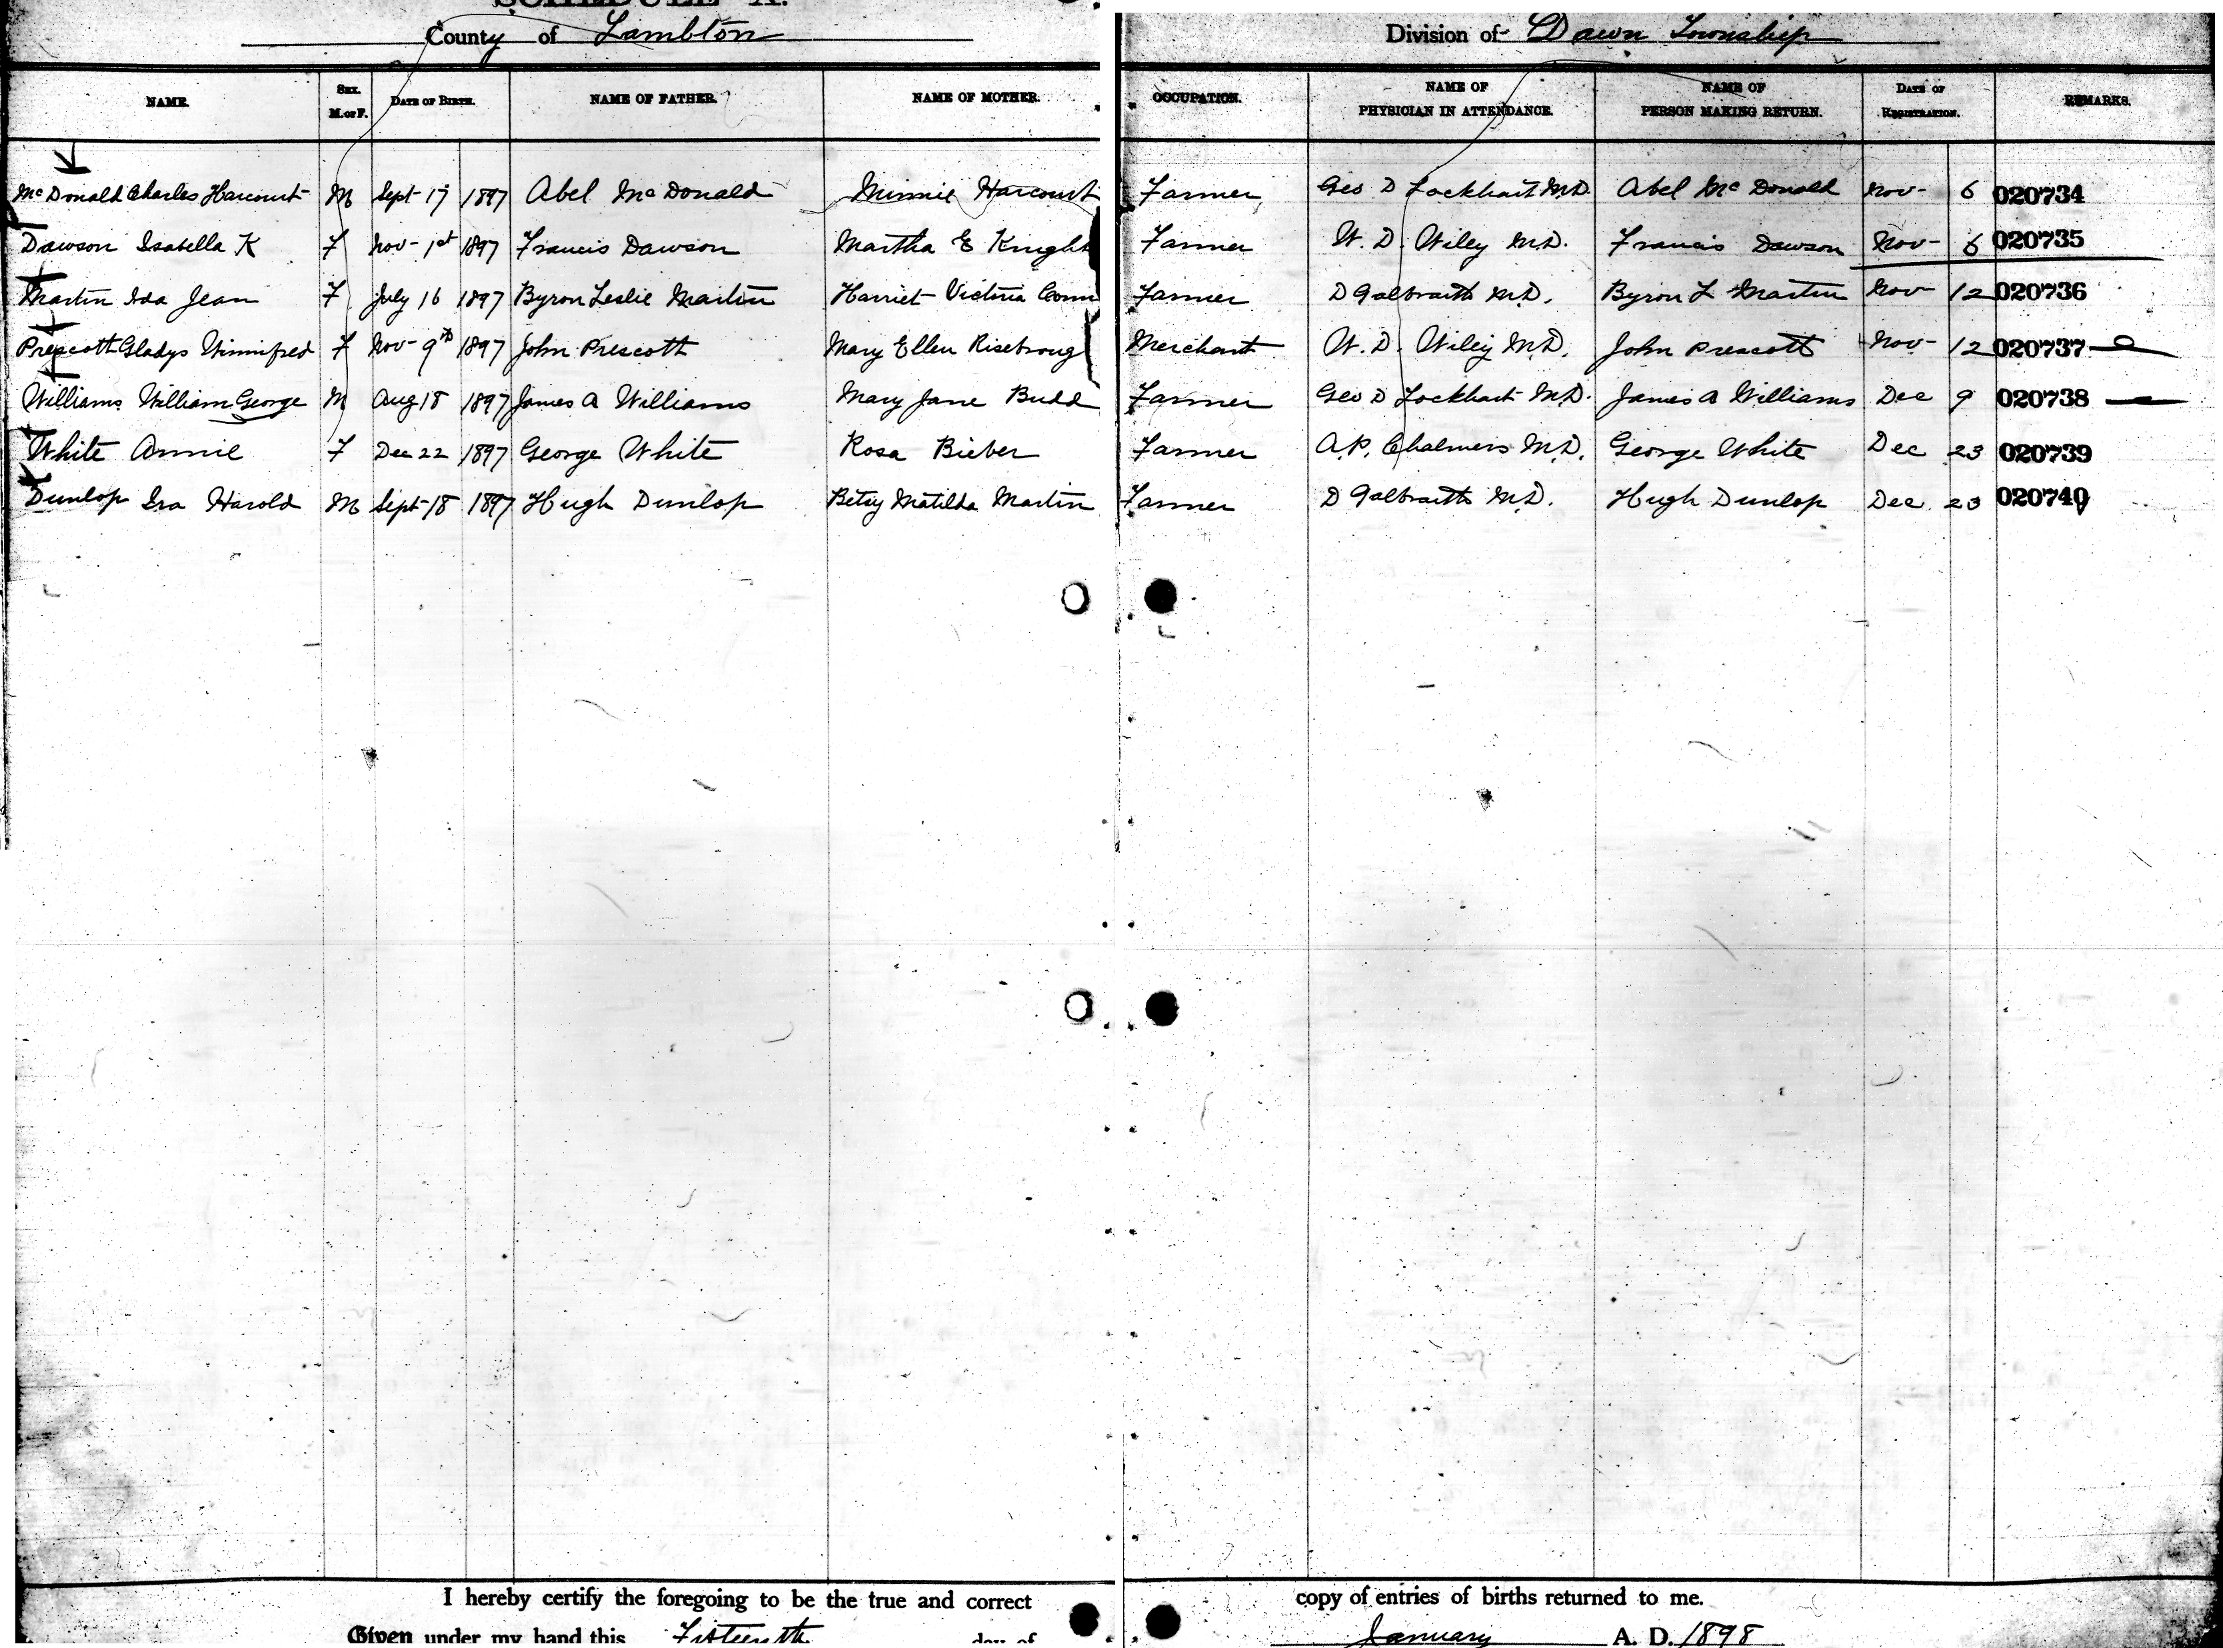 SCHEDULE A.
County of Lambton Division of Dawn Township
NAME. SEX. M. or F. DATE OF BIRTH. NAME OF FATHER. NAME OF MOTHER. OCCUPATION. NAME OF PHYSICIAN IN ATTENDANCE. NAME OF PERSON MAKING RETURN. DATE OF REGISTRATION. REMARKS.
McDonald Charles Harcourt M Sept 17 1897 Abel McDonald Minnie Harcourt Farmer Geo D Lockhart M.D. Abel McDonald Nov- 6 020734
Dawson Isabella K F Nov- 1st 1897 Francis Dawson Martha E Knight Farmer W. D. Wiley M.D. Francis Dawson Nov- 6 020735
Martin Ida Jean F July 16 1897 Byron Leslie Martin Harriet Victoria Farmer D Galbraith M.D. Byron L Martin Nov 12 020736
Prescott Gladys Winnifred F Nov- 9th 1897 John Prescott Mary Ellen Risebroug Merchant W. D. Wiley M.D. John Prescott Nov- 12 020737
Williams William George M Aug 18 1897 James A Williams Mary Jane Budd Farmer Geo D Lockhart M.D. James A Williams Dec 9 020738
White Annie F Dec 22 1897 George White Rosa Bieber Farmer A.P. Chalmers M.D. George White Dec 23 020739
Dunlop Ira Harold M Sept 18 1897 Hugh Dunlop Betsy Matilda Martin Farmer D Galbraith M.D. Hugh Dunlop Dec 23 020740
I hereby certify the foregoing to be the true and correct copy of entries of births returned to me.
Given under my hand this Fifteenth day of January A. D. 1898